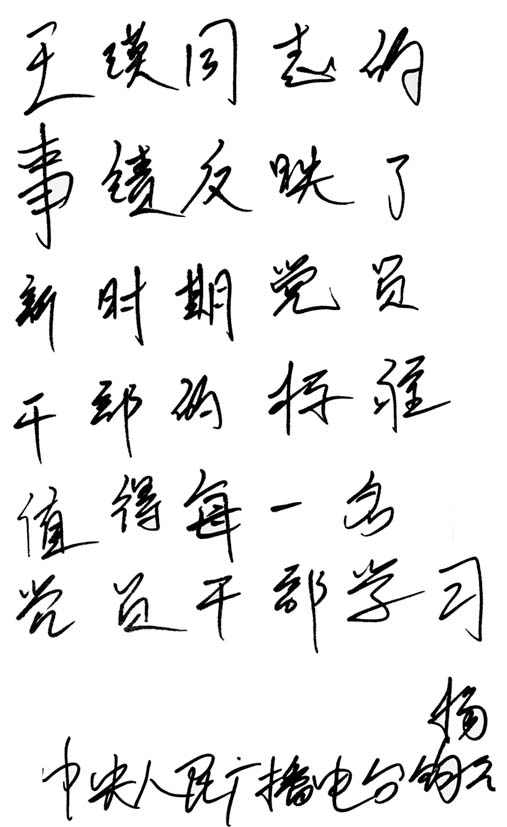 王瑛同志的
事绩反映了
新时期党员
干部的标准
值得每一名
党员干部学习
杨
中央人民广播电台